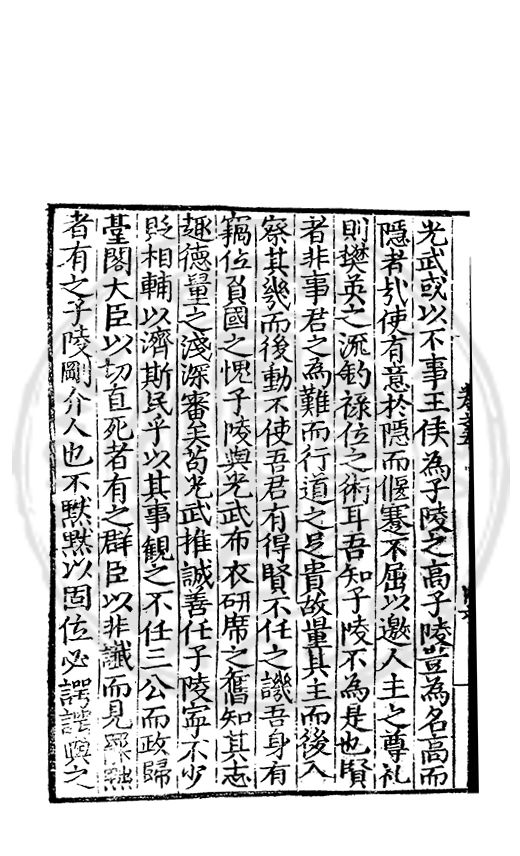 光武或以不事王侯為子陵之高子陵豈為名高而
隱者㢤使有意於隱而偃蹇不屈以邀人主之尊礼
則樊英之流釣祿位之術耳吾知子陵不為是也賢
者非事君之為難而行道之足貴故量其主而後入
察其幾而後動不使吾君有得賢不任之譏吾身有
竊位負國之愧子陵與光武布衣研席之舊知其志
趣德量之淺深審矣苟光武推誠善任子陵寧不少
貶相輔以濟斯民乎以其事觀之不任三公而政歸
臺閣大臣以切直死者有之群臣以非讖而見
者有之子陵剛介人也不默默以固位必諤諤與之